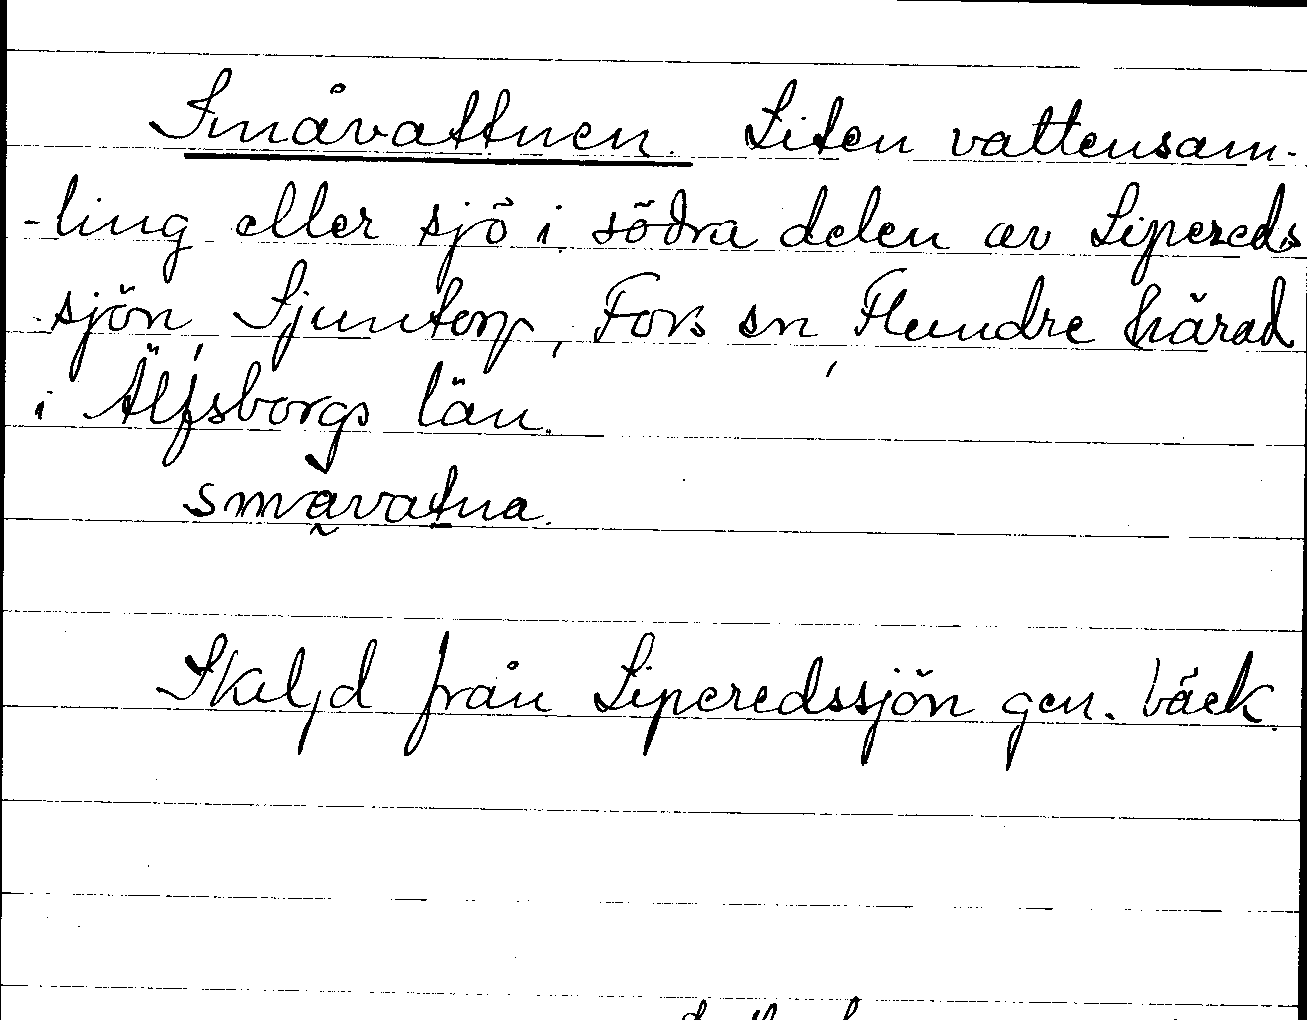 Småvattnen. Liten vattensam-
-ling eller sjö i södra delen av Lipereds
sjön, Sjuntorp, Fors sn, Flundre härad
i Älfsborgs län.
småvatna.
Skiljd från Liperedssjön gen. bäck.